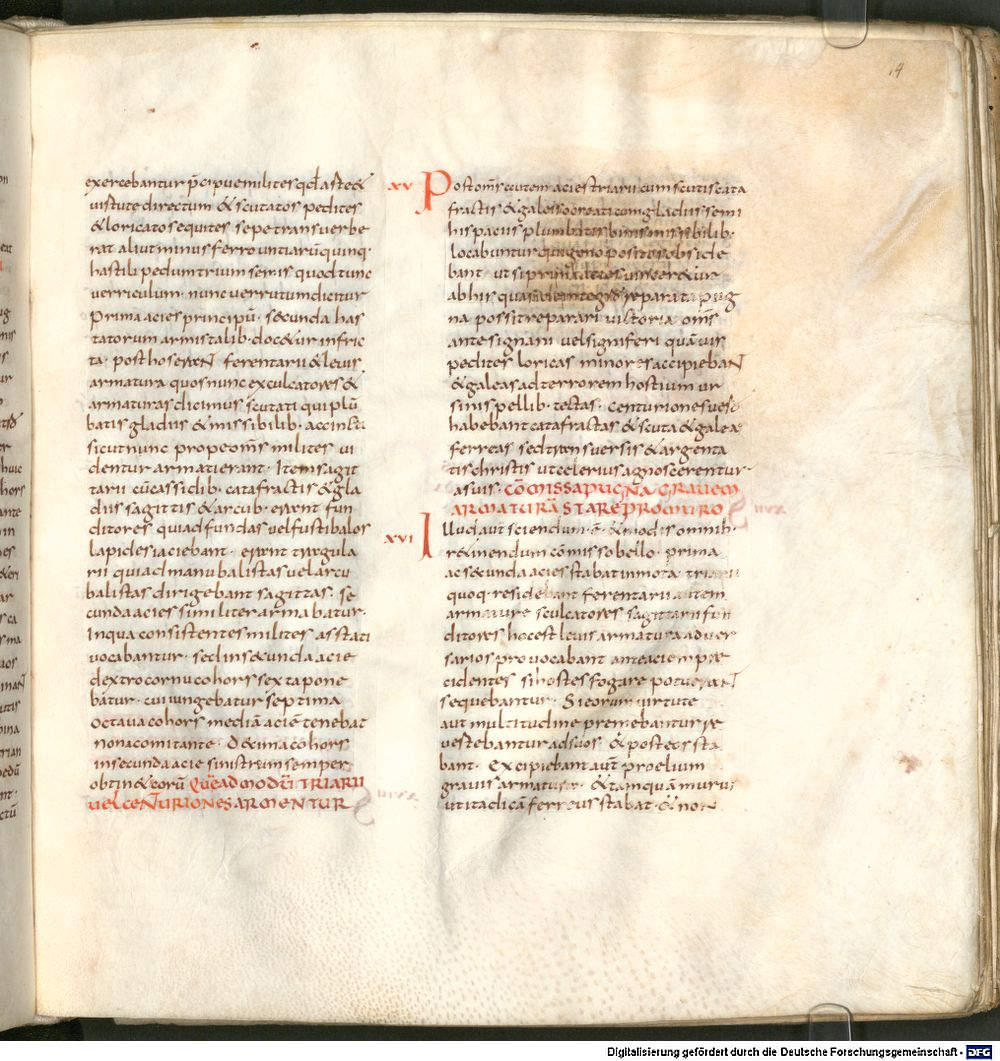 14
exercebantur p̄cipue milites qd̄ aste &
uistute directum & scutatos pedites
& loricatos equites sepe transuerbe
rat aliut minus ferro untiarū quinq·
hastili pedum trium semis quod tunc
uerriculum nunc uerrutum dicitur
Prima acies principū· secunda has
tatorum armis talib· doc&ur infric
ta· post hos erant ferentarii & leuis
armatura quos nunc exculcatores &
armaturas dicimus scutati qui plū
batis gladiis & missibilib· accincti
sicut nunc prope om̄s milites ui
dentur armati erant· Item sagit
tarii cū cassidib· catafractis & gla
diis sagittis & arcub· erant fun
ditores qui ad fundas uel fustibalos
lapides iaciebant· erant tragula
rii qui ad manubalistas uel arcu
balistas dirigebant sagittas· se
cunda acies similiter armabatur·
Inqua consistentes milites asstati
uocabantur· sed in s&unda acie
dextro cornu cohors sexta pone
batur· cui iungebatur septima
octaua cohors mediā aciē tenebat
nona comitante· D&ima cohors
in secunda acie sinistrum semper
obtin& corū QUĒADMODŪ TRIARII
UEL CENTURIONES ARMENTUR
XV Post om̄s autem acies triarii cum scutis cata
fractis & galeis ocreati cum gladiis semi
hispaciis plumbatis binis missibilib·
locabuntur qui genu posito subside
bant· ut si prima acies uincer&ur
ab his quasi de integro reparata pug
na possit reparari uictoria om̄s
ante signani uel signiferi quāuis
pedites loricas minores accipiebant
& galeas ad terrorem hostium ur
sinis pellib· tectas· centuriones uero
habebant catafractas & scuta & galeas
ferreas sed transuersis & argenta
tis christis ut celerius agnoscerentur·
asuis· CŌMISSA PUGNA GRAUEM
ARMATURĀ STARE PRO MURO
XVI Illud aut sciendum ē· & modis omnib·
r&inendum cōmisso bello· prima
ac s&unda acies stabat inmota· triarii
quoq· residebant ferentarii autem
armature sculcatores sagittarii fun
ditores hoc est leuis armatura aduer
sarios prouocabant ante aciem præ
cidentes si hostes fogare potuerant
sequebantur· Si eorum uirtute
aut multitudine premebantur re
uestebantur ad suos· & post eos sta
bant· Excipiebant aut̄ proelium
grauis armatura· & tamquā murus
ut ita dicā ferreus stabat· & non
Digitalisierung gefördert durch die Deutsche Forschungsgemeinschaft - DFG